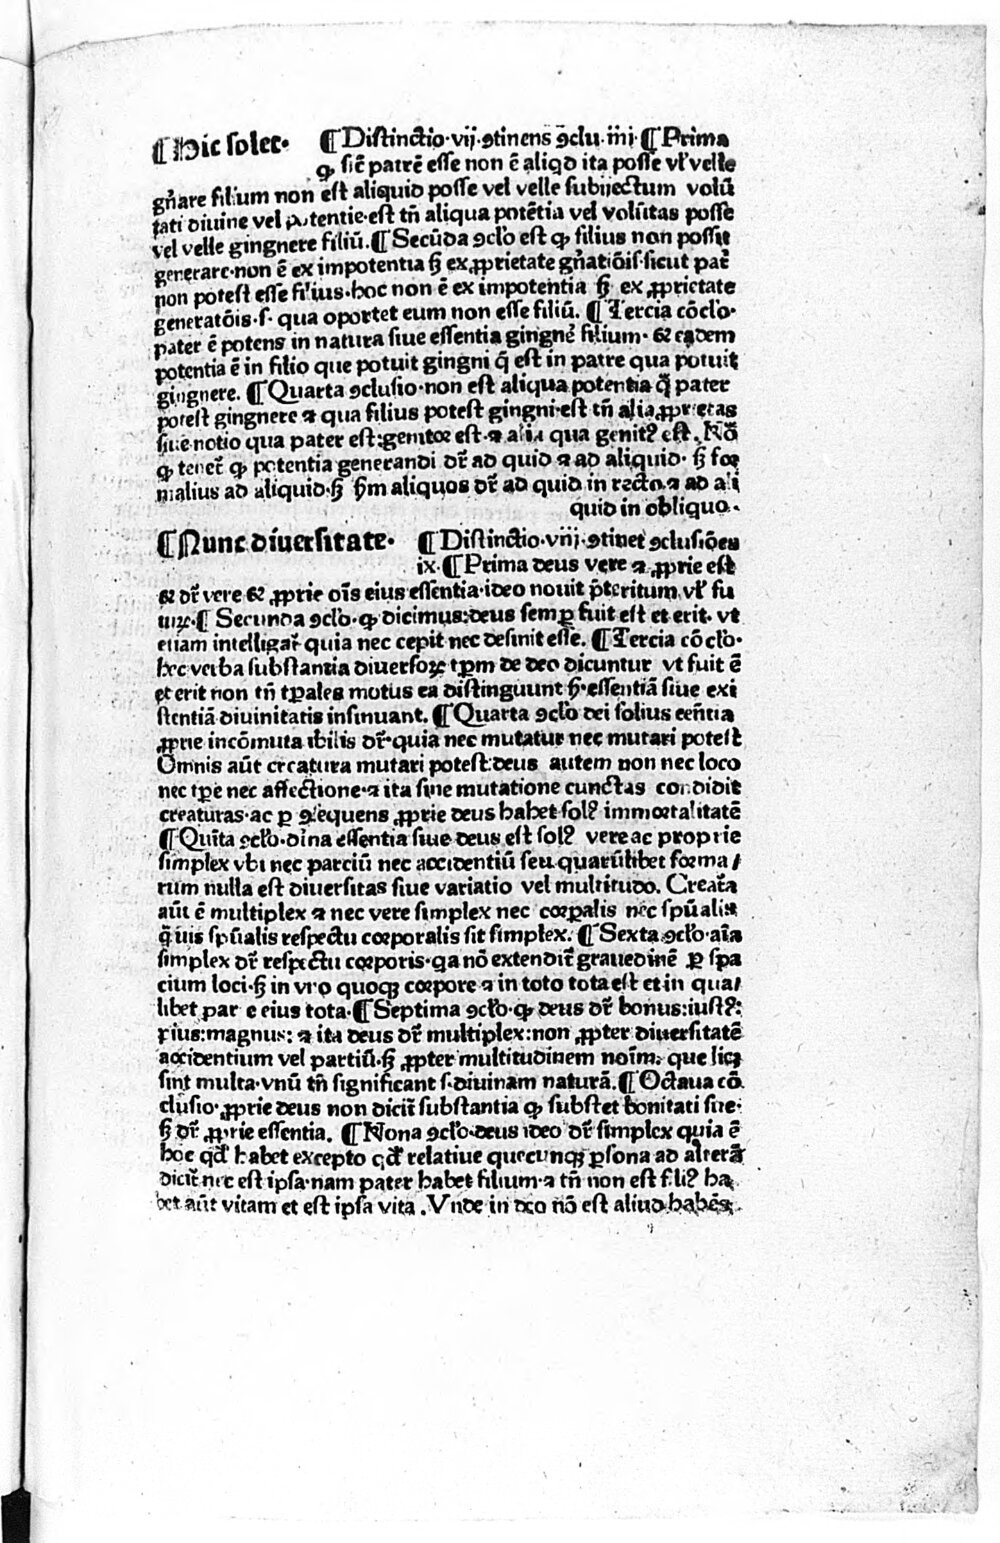 ¶Hic solet· ¶Distinctio·vij·ꝯtinens ꝯclu·iiij ¶Prima
ꝙ sic̄ patrē esse non ē aliqđ ita posse vl̓ velle
gn̄are filium non est aliquid posse vel velle subijectum volū
tati diuine vel potentie·est tn̄ aliqua potētia vel volūtas posse
vel velle gingnere filiū.¶Secūda ꝯclo̓ est ꝙ filius non possit
generare·non ē ex impotentia sꝫ ex ꝓprietate gn̄atiōis·sicut pat̄
non potest esse filius·hoc non ē ex impotentia sꝫ ex ꝓprietate
generatōis·s· qua oportet eum non esse filiū. ¶Tercia cōclo̓·
pater ē potens in natura siue essentia gingne̓ filium· ⁊ eadem
potentia ē in filio que potuit gingni q̄ est in patre qua potuit
gingnere. ¶Quarta ꝯclusio·non est aliqua potentia q̄ pater
potest gingnere ⁊ qua filius potest gingni·est tn̄ alia ꝓprietas
siue notio qua pater est:genitor est·⁊ alia qua genitꝰ est. Nō
ꝙ tenet̄ ꝙ potentia generandi dr̄ ad quid ⁊ ad aliquid· sꝫ for
malius ad aliquid·sꝫ sm̄ aliquos dr̄ ad quid in recto ⁊ ad ali
quid in obliquo·
¶Nunc diuersitate· ¶Distinctio·viij·ꝯtinet ꝯclusiōes
ix·¶Prima deus vere ⁊ ꝓprie est
⁊ dr̄ vere ⁊ ꝓprie oīs eius essentia·ideo nouit p̄teritum vl̓ fu
tuꝝ·¶Secunda ꝯclo̓·ꝙ dicimus:deus semꝑ fuit est et erit· vt
etiam intelligat̄ quia nec cepit nec desinit esse. ¶Tercia cōclo̓·
hec verba substantia diuersoꝝ tꝑm de deo dicuntur vt fuit ē
et erit non tn̄ tꝑales motus ea distinguunt sꝫ·essentiā siue exi
stentiā diuinitatis insinuant.¶Quarta ꝯclo̓ dei solius eēntia
ꝓprie incōmutabilis dr̄·quia nec mutatur nec mutari potest
Omnis aūt creatura mutari potest:deus autem non nec loco
nec tꝑe nec affectione·⁊ ita sine mutatione cunctas condidit
creaturas·ac ꝑ ꝯsequens ꝓprie deus habet solꝰ immortalitatē
¶Quīta ꝯclo̓·diīna essentia siue deus est solꝰ vere ac proprie
simplex vbi nec parciū nec accidentiū seu quarūlibet forma/
rum nulla est diuersitas siue variatio vel multitudo. Creat̄a
aūt ē multiplex ⁊ nec vere simplex nec corꝑalis nec spūalis
q̄uis spūalis respectu corporalis sit simplex. ¶Sexta ꝯclo̓·aīa
simplex dr̄ respectu corporis·qa nō extendit̄ grauedinē ꝑ spa
cium loci·sꝫ in vro quoqꝫ corpore ⁊ in toto tota est et in qua/
libet parte eius tota·¶Septima ꝯclo̓·ꝙ deus dr̄ bonus:iustꝰ:
pius:magnus: ⁊ ita deus dr̄ multiplex:non ꝓpter diuersitatē
accidentium vel partiū·sꝫ ꝓpter multitudinem noīm· que licꝫ
sint multa·vnū tn̄ significant s·diuinam naturā.¶Octaua cō
clusio·ꝓprie deus non dicit̄ substantia ꝙ substet bonitati sue·
sꝫ dr̄ ꝓprie essentia. ¶Nona ꝯclo̓·deus ideo dr̄ simplex quia ē
hoc qđ habet excepto qđ relatiue quecunqꝫ ꝑsona ad alterā
dicit̄ nec est ipsa·nam pater habet filium·⁊ tn̄ non est filiꝰ ha
bet aūt vitam et est ipsa vita. Vnde in deo nō est aliud habēs